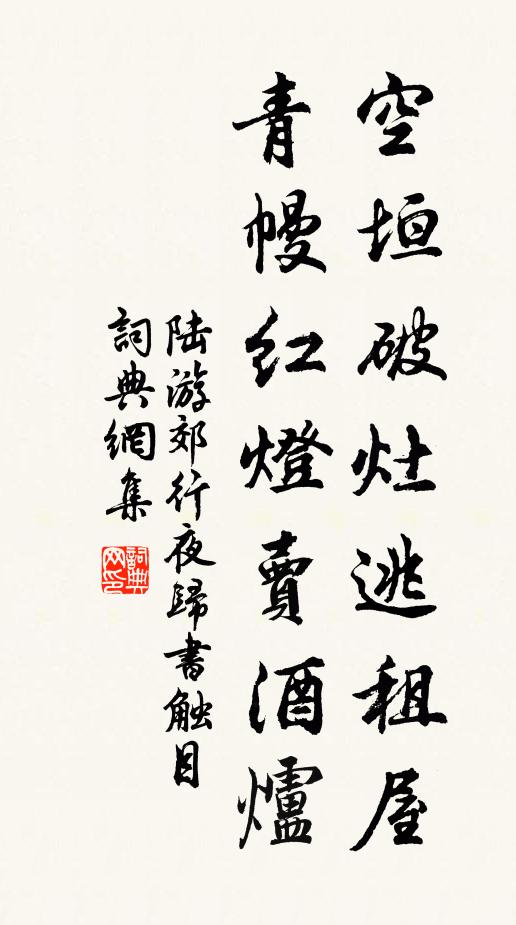 空垣破灶逃租屋
青幔紅燈賣酒爐
陆游郊行夜歸書触目
詞典網集
詞典网印